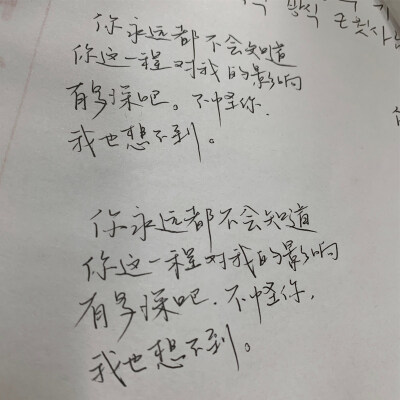 방식
你永远都不会知道
你这一程对我的影响
有多深吧。不怪你.
我也想不到。
你永远都不会知道
你这一程对我的影响
有多深吧.不怪你,
我也想不到。